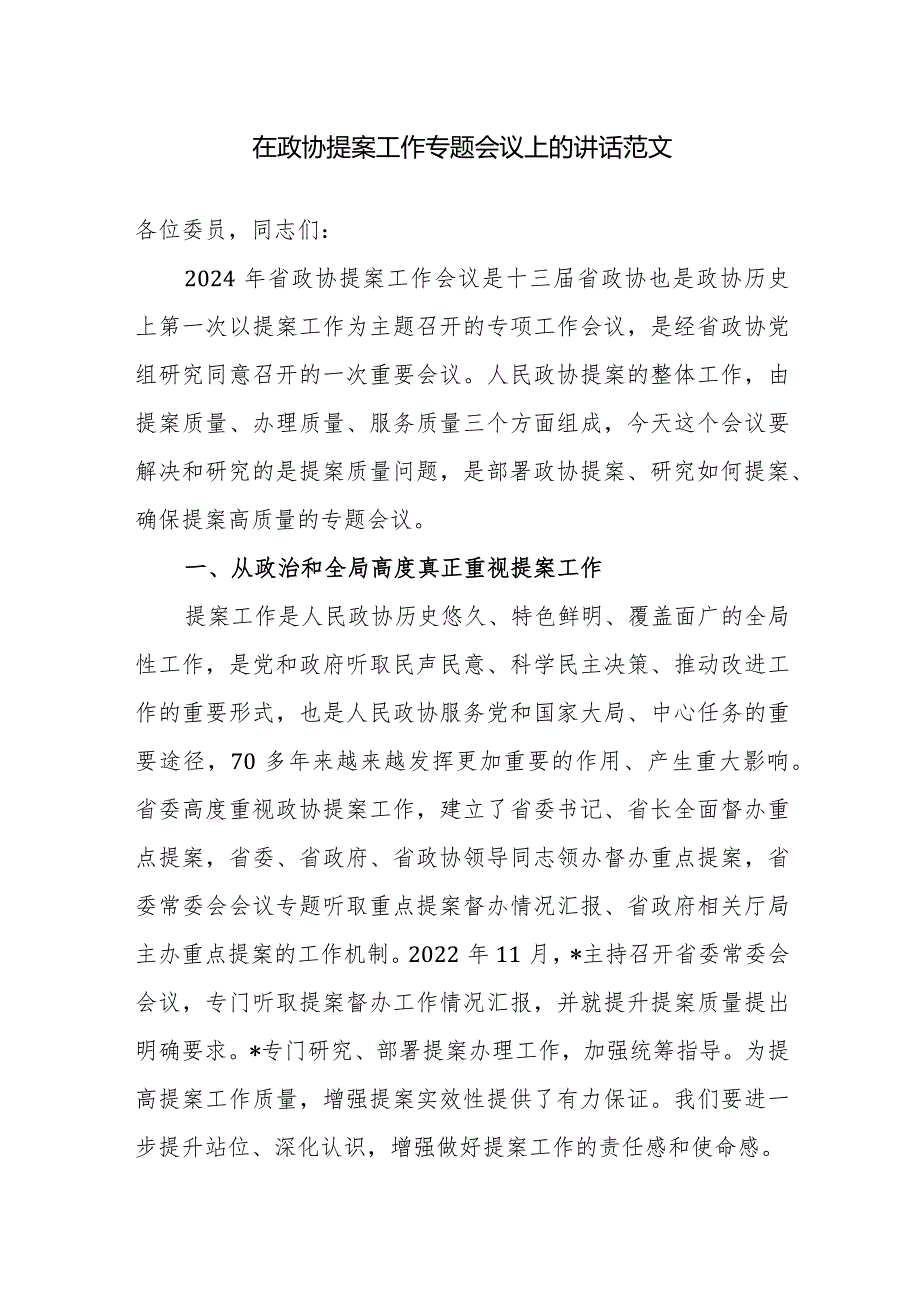 在政协提案工作专题会议上的讲话范文
各位委员，同志们：
2024 年省政协提案工作会议是十三届省政协也是政协历史
上第一次以提案工作为主题召开的专项工作会议，是经省政协党
组研究同意召开的一次重要会议。人民政协提案的整体工作，由
提案质量、办理质量、服务质量三个方面组成，今天这个会议要
解决和研究的是提案质量问题，是部署政协提案、研究如何提案、
确保提案高质量的专题会议。
一、从政治和全局高度真正重视提案工作
提案工作是人民政协历史悠久、特色鲜明、覆盖面广的全局
性工作，是党和政府听取民声民意、科学民主决策、推动改进工
作的重要形式，也是人民政协服务党和国家大局、中心任务的重
要途径，70 多年来越来越发挥更加重要的作用、产生重大影响。
省委高度重视政协提案工作，建立了省委书记、省长全面督办重
点提案，省委、省政府、省政协领导同志领办督办重点提案，省
委常委会会议专题听取重点提案督办情况汇报、省政府相关厅局
主办重点提案的工作机制。2022 年 11 月，*主持召开省委常委会
会议，专门听取提案督办工作情况汇报，并就提升提案质量提出
明确要求。*专门研究、部署提案办理工作，加强统筹指导。为提
高提案工作质量，增强提案实效性提供了有力保证。我们要进一
步提升站位、深化认识，增强做好提案工作的责任感和使命感。